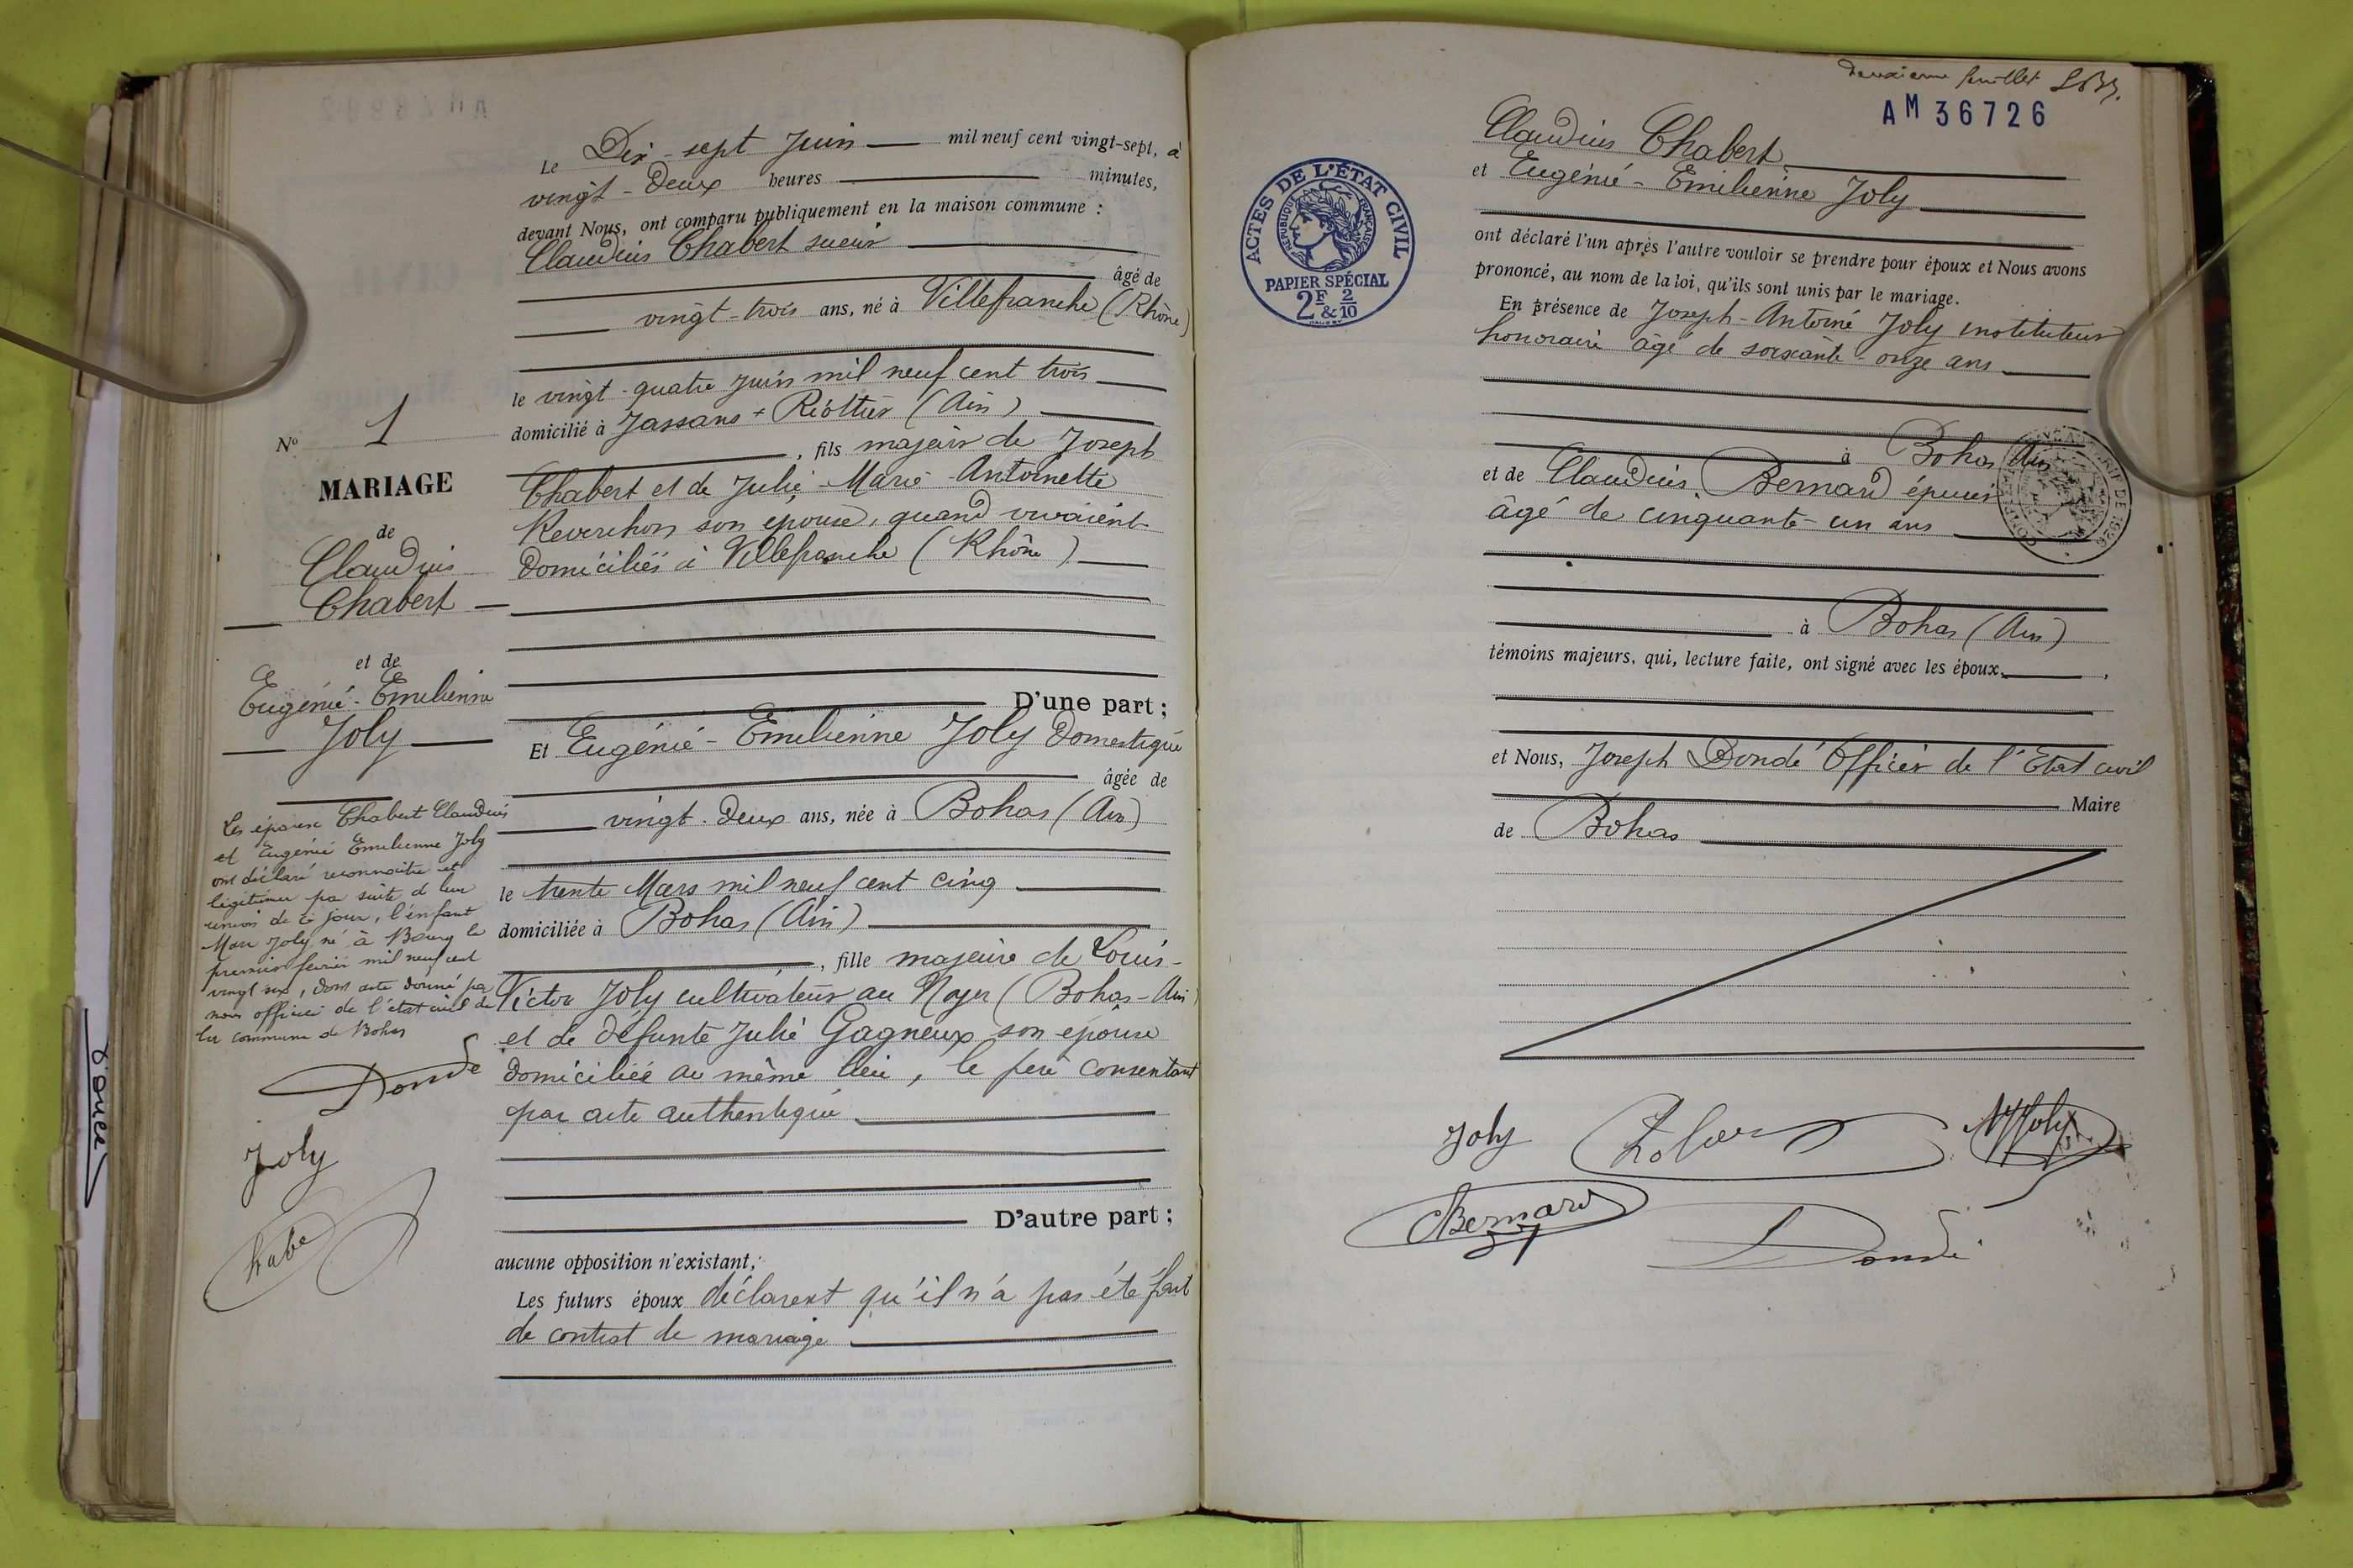 Le Dix-sept Juin mil neuf cent vingt-sept, à
vingt-Deux heures minutes,
devant Nous, ont comparu publiquement en la maison commune :
Claudius Chabert scieur
âgé de
vingt-trois ans, né à Villefranche (Rhône)
le vingt-quatre Juin mil neuf cent trois
domicilié à Jassans + Riottier (Ain)
, fils majeur de Joseph
Chabert et de Julie-Marie-Antoinette
Reverchon son épouse, quand vivaient
Domiciliés à Villefranche (Rhône)
D'une part ;
Et Eugénie-Emilienne Joly Domestique
âgée de
vingt-Deux ans, née à Bohas (Ain)
le trente Mars mil neuf cent cinq
domiciliée à Bohas (Ain)
, fille majeure de Louis-
Victor Joly cultivateur au Noyer (Bohas-Ain)
et de défunte Julie Gagneux son épouse
domiciliée au même lieu, le père consentant
par acte authentique
D'autre part ;
aucune opposition n'existant ;
Les futurs époux déclarent qu'il n'a pas été fait
de contrat de mariage
N° 1
MARIAGE
de
Claudius
Chabert
et de
Eugénie-Emilienne
Joly
Les époux Chabert Claudius
et Eugénie Emilienne Joly
ont déclaré reconnaitre et
légitimer par suite de leur
union de ce jour, l'enfant
Marc Joly né à Bourg le
premier février mil neuf cent
vingt six, dont acte donné par
nous officier de l'état civil de
la commune de Bohas
Dondé
Joly
habe
deuxième feuillet
AM 36726
Claudius Chabert
et Eugénie-Emilienne Joly
ont déclaré l'un après l'autre vouloir se prendre pour époux et Nous avons
prononcé, au nom de la loi, qu'ils sont unis par le mariage.
En présence de Joseph-Antoine Joly instituteur
honoraire âgé de soixante-onze ans
à Bohas Ain
et de Claudius Bernard épicier
âgé de cinquante-un ans
à Bohas (Ain)
témoins majeurs, qui, lecture faite, ont signé avec les époux,
et Nous, Joseph Dondé Officier de l'Etat civil
Maire
de Bohas
Joly
Joly
Bernard
Dondé
ACTES DE L'ÉTAT CIVIL
RÉPUBLIQUE FRANÇAISE
PAPIER SPÉCIAL
2F & 2/10
DE 1926